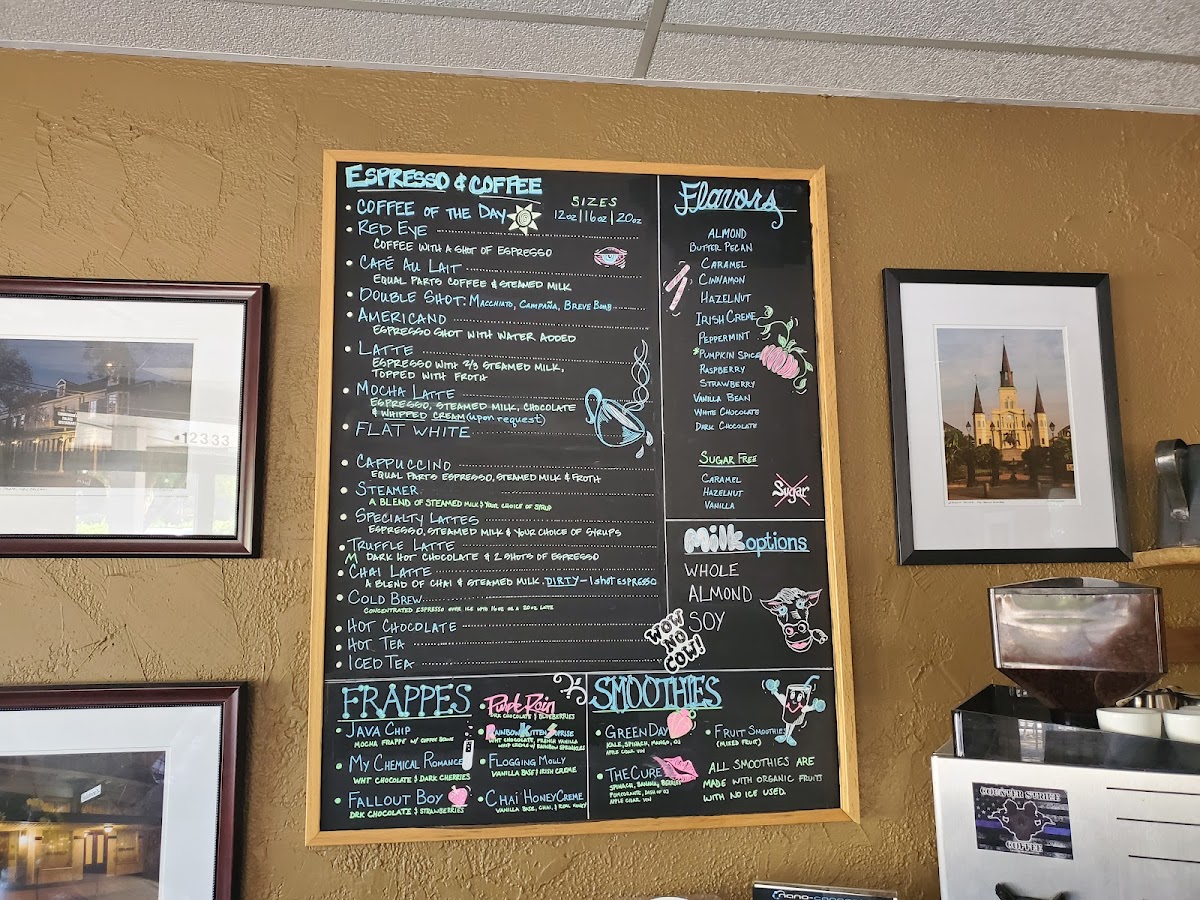 ESPRESSO & COFFEE
SIZES
12oz | 16oz | 20oz
• COFFEE OF THE DAY
• RED EYE
COFFEE WITH A SHOT OF ESPRESSO
• CAFÉ AU LAIT
EQUAL PARTS COFFEE & STEAMED MILK
• DOUBLE SHOT: MACCHIATO, CAMPAÑA, BREVE BOMB
• AMERICANO
ESPRESSO SHOT WITH WATER ADDED
• LATTE
ESPRESSO WITH 2/3 STEAMED MILK,
TOPPED WITH FROTH
• MOCHA LATTE
ESPRESSO, STEAMED MILK, CHOCOLATE
& WHIPPED CREAM (upon request)
• FLAT WHITE
• CAPPUCCINO
EQUAL PARTS ESPRESSO, STEAMED MILK & FROTH
• STEAMER
A BLEND OF STEAMED MILK & YOUR CHOICE OF SYRUP
• SPECIALTY LATTES
ESPRESSO, STEAMED MILK & YOUR CHOICE OF SYRUPS
• TRUFFLE LATTE
DARK HOT CHOCOLATE & 2 SHOTS OF ESPRESSO
• CHAI LATTE
A BLEND OF CHAI & STEAMED MILK. DIRTY - 1 SHOT ESPRESSO
• COLD BREW
CONCENTRATED ESPRESSO OVER ICE
• HOT CHOCOLATE
• HOT TEA
• ICED TEA
Flavors
ALMOND
BUTTER PECAN
CARAMEL
CINNAMON
HAZELNUT
IRISH CREME
PEPPERMINT
*PUMPKIN SPICE
RASPBERRY
STRAWBERRY
VANILLA BEAN
WHITE CHOCOLATE
DARK CHOCOLATE
SUGAR FREE
CARAMEL
HAZELNUT
VANILLA
Sugar
Milk options
WHOLE
ALMOND
SOY
WOW
NO
COW!
FRAPPES
• JAVA CHIP
MOCHA FRAPPE W/ COFFEE BEANS
• MY CHEMICAL ROMANCE
WHT CHOCOLATE & DARK CHERRIES
• FALLOUT BOY
DRK CHOCOLATE & STRAWBERRIES
• Purple Rain
DRK CHOCOLATE & BLUEBERRIES
• RAINBOW KITTEN SURPRISE
WHT CHOCOLATE, FRENCH VANILLA
WHIP CREAM & RAINBOW SPRINKLES
• FLOGGING MOLLY
VANILLA BASE & IRISH CREME
• CHAI HONEY CREME
VANILLA BASE, CHAI, & REAL HONEY
SMOOTHIES
• GREEN DAY
KALE, SPINACH, MANGO, OJ
APPLE CIDER VIN
• THE CURE
SPINACH, BANANA, BERRIES
POMEGRANATE, DASH OF OJ
APPLE CIDER VIN
• FRUIT SMOOTHIES
(MIXED FRUIT)
ALL SMOOTHIES ARE
MADE WITH ORGANIC FRUIT
WITH NO ICE USED.
12333
COUNTER STRIKE
COFFEE